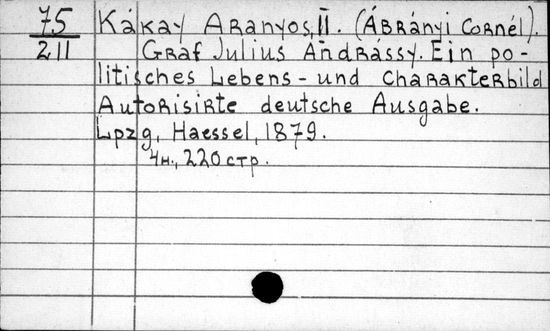 75
211
Kákay Aranyos, II. (Ábrányi Cornél).
Graf Julius Andrássy. Ein po-
litisches Lebens- und Charakterbild
Autorisirte deutsche Ausgabe.
Lpzg, Haessel, 1879.
4н., 220 стр.